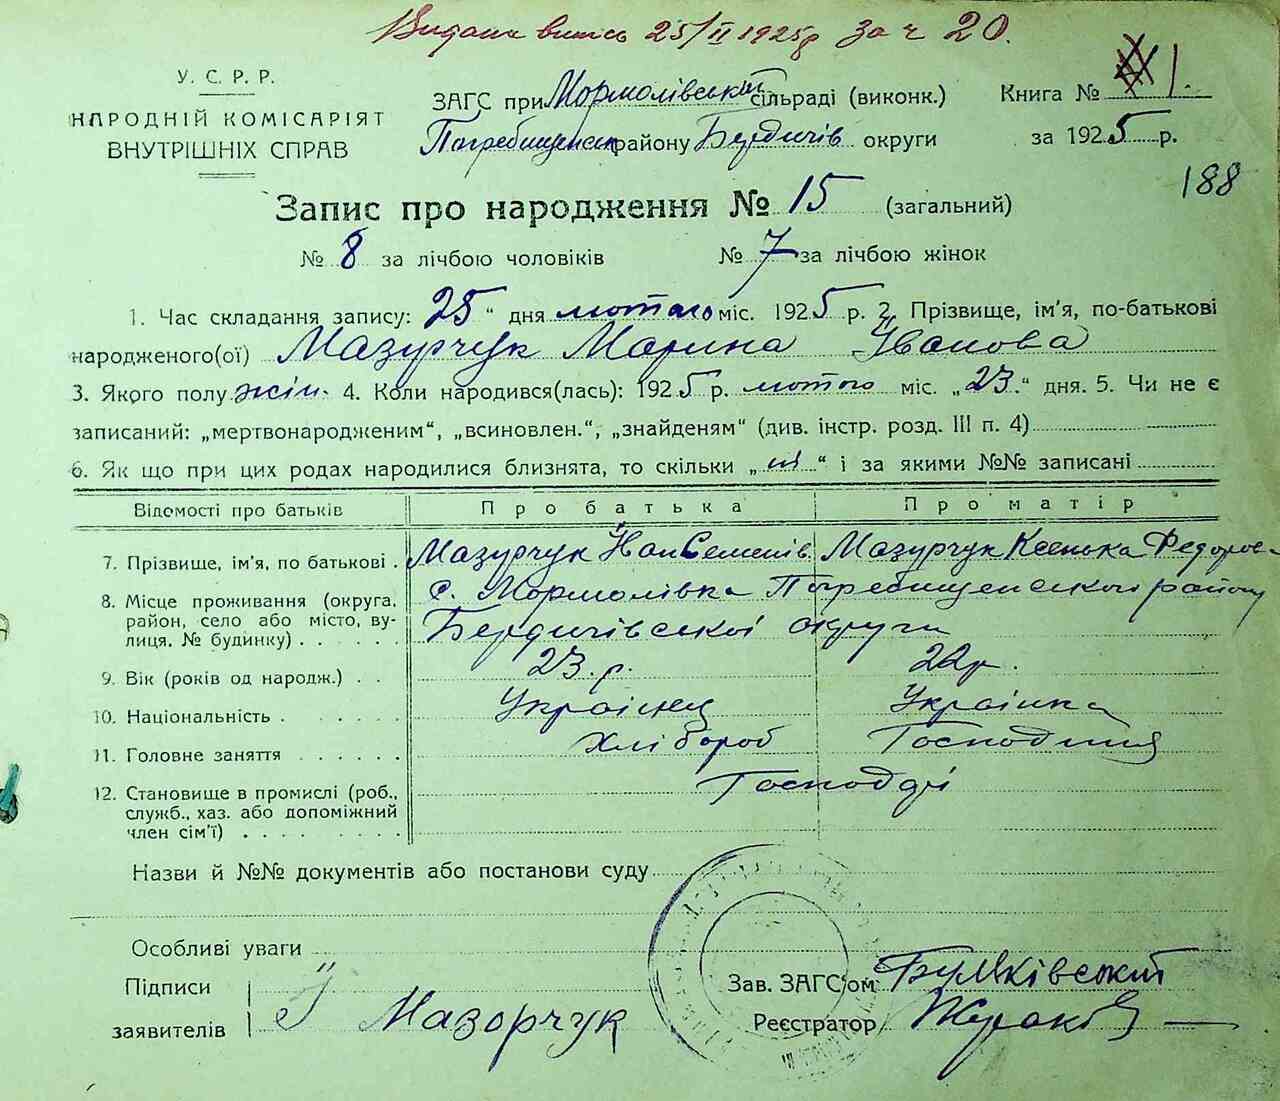 Видана випись 25/II 1925 р за ч 20.
У. С. Р. Р.
НАРОДНІЙ КОМІСАРІЯТ
ВНУТРІШНІХ СПРАВ
ЗАГС при Мормолівській сільраді (виконк.) Книга № 1.
Погребищенськ району Бердичів округи за 1925 р.
188
Запис про народження № 15 (загальний)
№ 8 за лічбою чоловіків № 7 за лічбою жінок
1. Час складання запису: 25 " дня лютого міс. 1925 р. 2. Прізвище, ім'я, по-батькові
народженого(ої) Мазурчук Марина Іванова
3. Якого полу жін. 4. Коли народився(лась): 1925 р. лютого міс. „23." дня. 5. Чи не є
записаний: „мертвонародженим“, „всиновлен.“, „знайденям“ (див. інстр. розд. III п. 4)
6. Як що при цих родах народилися близнята, то скільки „ні“ і за якими №№ записані
Відомості про батьків Про батька Про матір
7. Прізвище, ім'я, по батькові . Мазурчук Йван Семенів Мазурчук Ксенька Федоров-
8. Місце проживання (округа, с. Мормолівка Погребищенського району
район, село або місто, ву- Бердичівської округи
лиця, № будинку) . . . . .
9. Вік (років од народж.) . . 23. р. 22 р.
10. Національність . . . . . . Українец Українка
11. Головне заняття . . . . . . Хлібороб Господиня
12. Становище в промислі (роб., Господарі
служб., хаз. або допоміжний
член сім'ї) . . . . . . . .
Назви й №№ документів або постанови суду
Особливі уваги
Підписи Зав. ЗАГС'ом
заявителів І Мазорчук Реєстратор